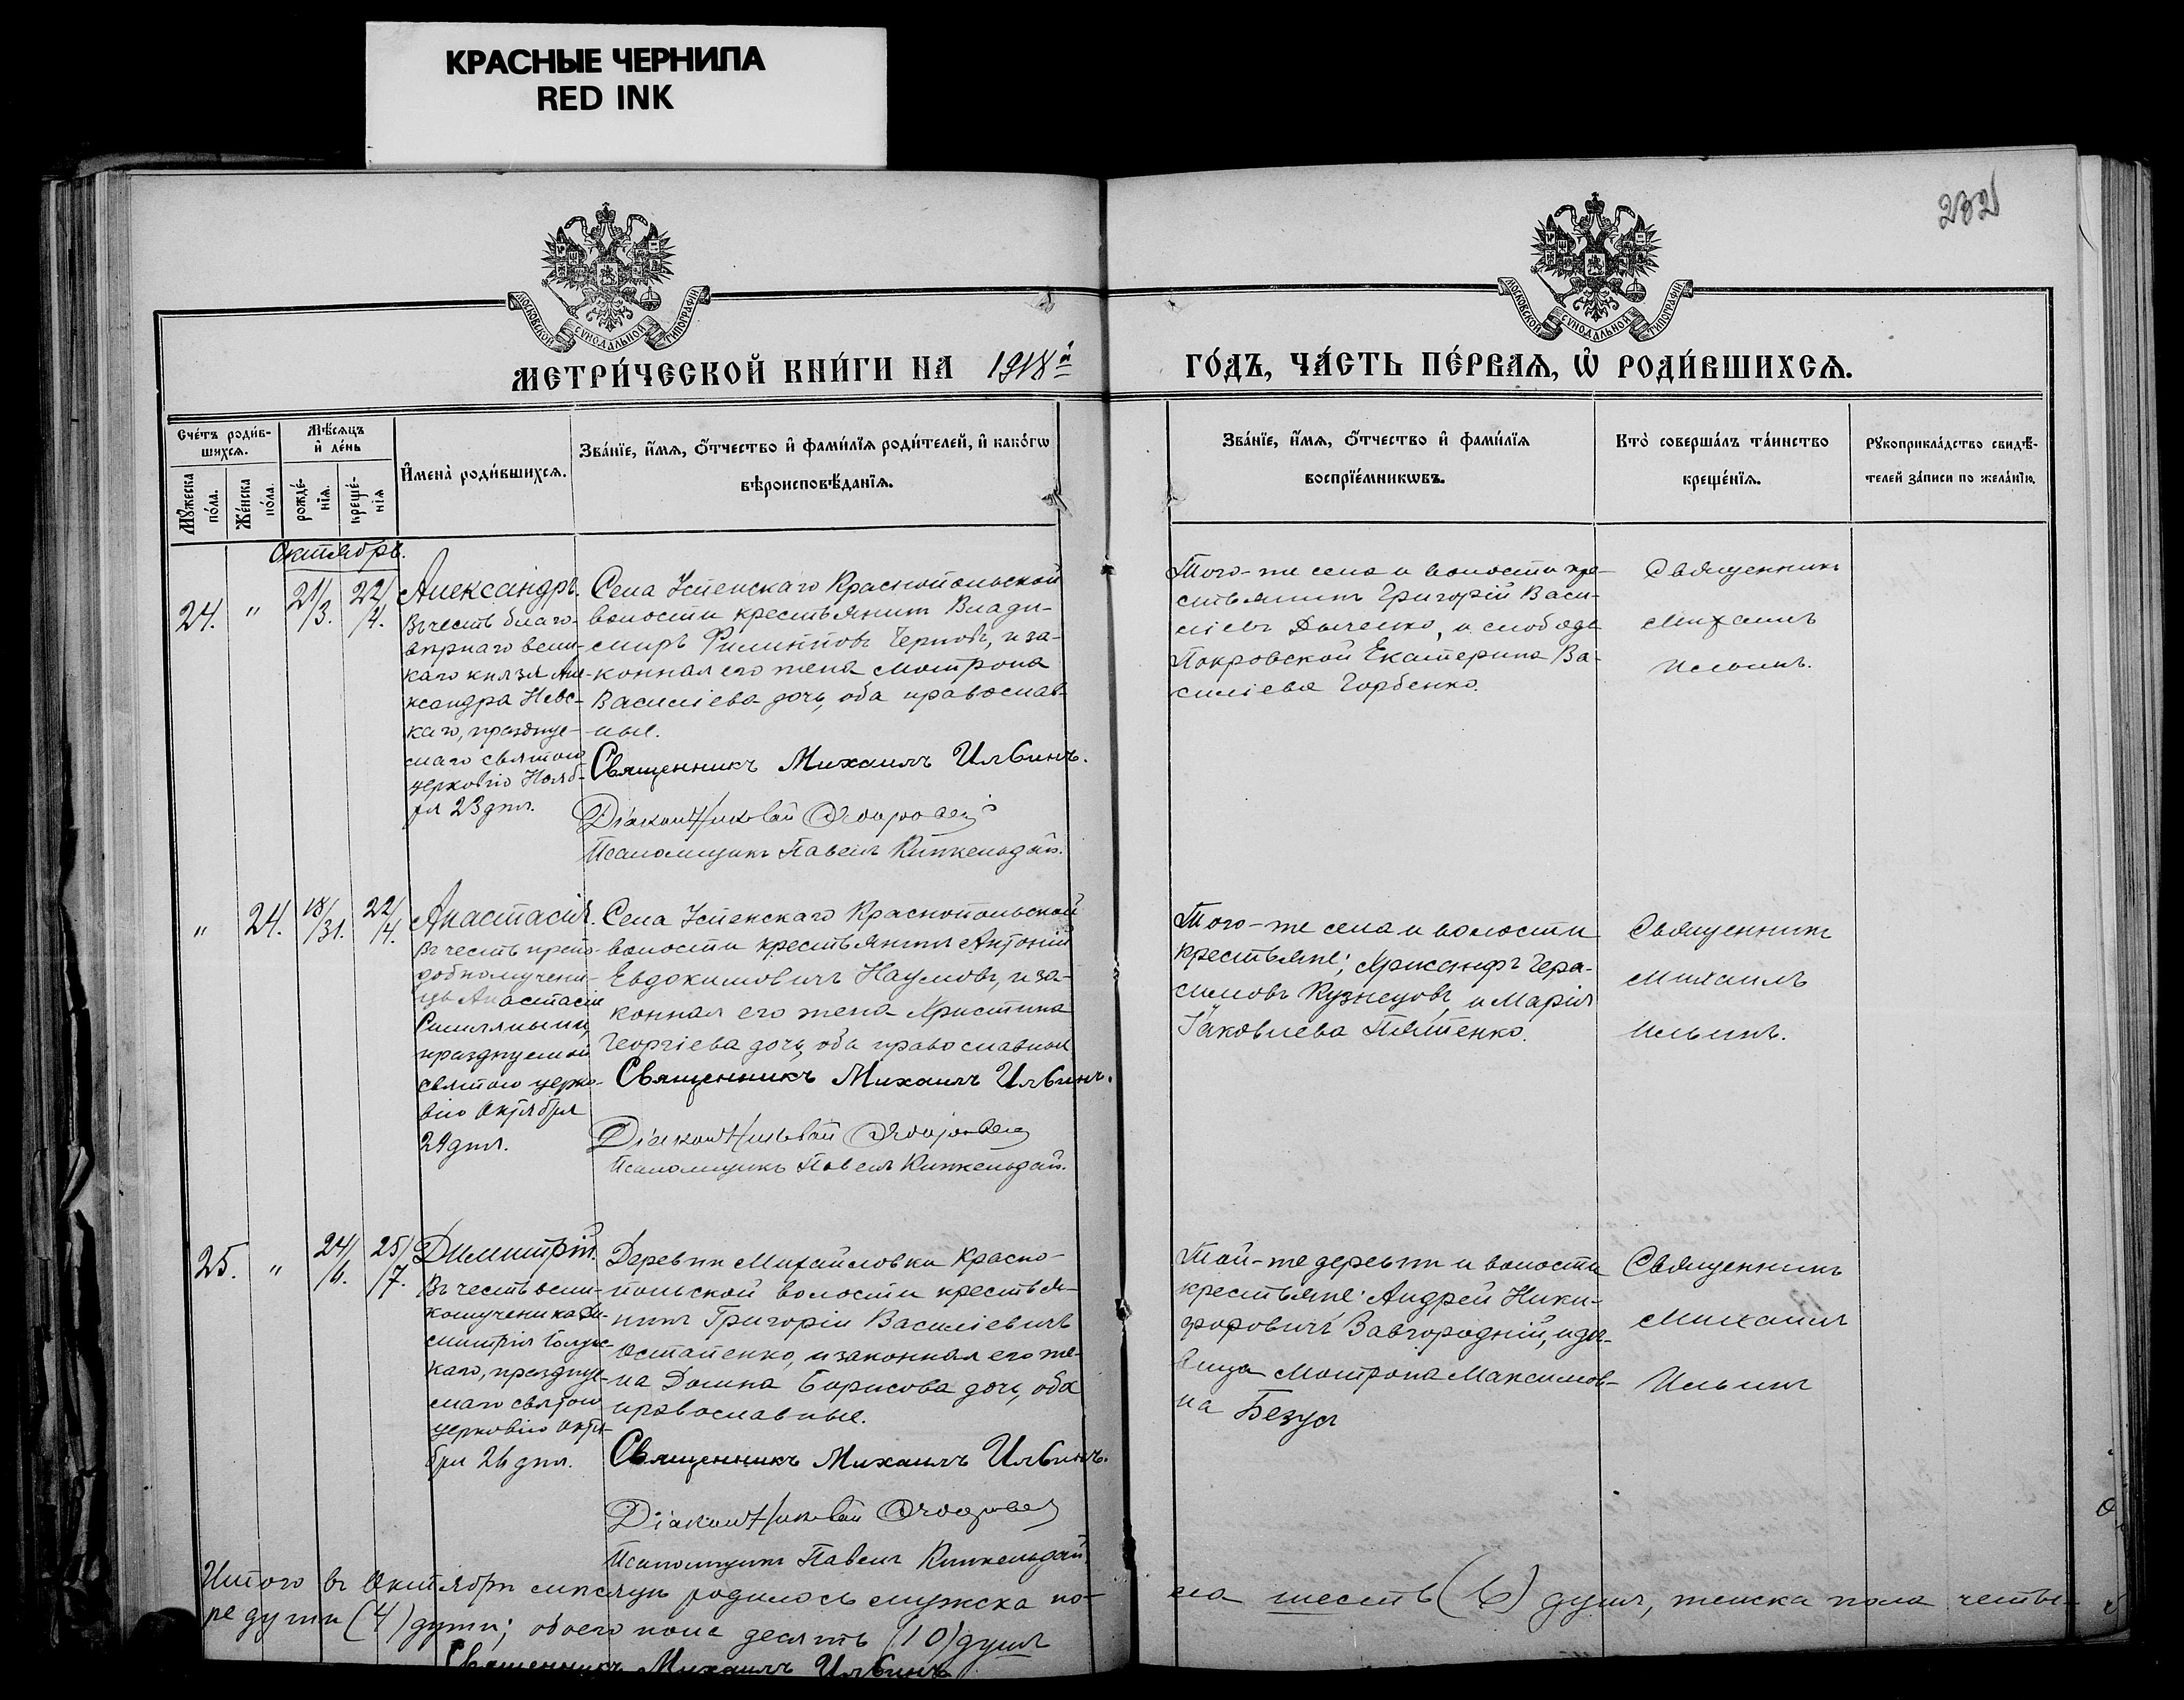 КРАСНЫЕ ЧЕРНИЛА
RED INK
232
МОСКОВСКОЙ СѴНОДАЛЬНОЙ ТИПОГРАФІИ
МОСКОВСКОЙ СѴНОДАЛЬНОЙ ТИПОГРАФІИ
МЕТРИ́ЧЕСКОЙ КНИ́ГИ НА 1918й
ГО́ДЪ, ЧА́СТЬ ПЕ́РВАѦ, Ѡ҆ РОДИ́ВШИХСѦ.
Сче́тъ роди́в-
шихсѧ.
Мꙋ́жеска по́ла.
Же́нска по́ла.
Мѣ́сѧцъ
и҆ де́нь
рожде́-
нїѧ.
креще́-
нїѧ
И҆мена̀ роди́вшихсѧ.
Зва́нїе, и҆́мѧ, ѻ҆́тчество и҆ фами́лїѧ роди́телей, и҆ како́гѡ
вѣроисповѣ́данїѧ.
Зва́нїе, и҆́мѧ, ѻ҆́тчество и҆ фами́лїѧ
воспрїе́мникѡвъ.
Кто̀ соверша́лъ та́инство
креще́нїѧ.
Рꙋкоприкла́дство свидѣ́-
телей за́писи по жела́нїю.
Октябрь.
24. " 21/3. 22/4.
Александръ.
Въ честь благо-
вѣрнаго вели-
каго князя Але-
ксандра Невс-
каго, празднуе-
маго святою
церковію Нояб-
ря 23 дня.
Села Успенскаго Краснопольской
волости крестьянинъ Влади-
миръ Филипповъ Черновъ, и за-
конная его жена Мотрона
Василіева дочь, оба православ-
ные.
Священникъ Михаилъ Ильинъ.
Діаконъ Николай
Псаломщикъ Павелъ
Того-же села и волости кре-
стьянинъ Григорій Васи-
ліевъ Дыченко, и слободы
Покровской Екатерина Ва-
силіева Горбенко.
Священникъ
Михаилъ
Ильинъ.
" 24. 18/31. 22/4.
Анастасія.
Въ честь препо-
добномучени-
цы Анастасіи
Римляныни,
празднуемой
святою церко-
вію Октября
29 дня.
Села Успенскаго Краснопольской
волости крестьянинъ Антоній
Евдокимовичъ Наумовъ, и за-
конная его жена Христина
Георгіева дочь, оба православные
Священникъ Михаилъ Ильинъ.
Діаконъ Николай
Псаломщикъ Павелъ
Того-же села и волости
крестьяне; Хрисанфъ Гера-
симовъ Кузнецовъ, и Марія
Іаковлева
Священникъ
Михаилъ
Ильинъ.
25. " 24/6. 25/7.
Димитрій.
Въ честь вели-
комученика Ди-
митрія Солунс-
каго, празднуе-
маго святою
церковію Октя-
бря 26 дня.
Деревни Михайловки Красно-
польской волости крестья-
нинъ Григорій Василіевичъ
Остапенко, и законная его же-
на Домна Борисова дочь, оба
православные.
Священникъ Михаилъ Ильинъ.
Діаконъ Николай
Псаломщикъ Павелъ
Той-же деревни и волости
крестьяне: Андрей Ники-
форовичъ Завгородній, и дѣ-
вица Мотрона Максимов-
на Безусъ
Священникъ
Михаилъ
Ильинъ
Итого въ Октябрѣ мѣсяцѣ родилось мужска по-
ла шесть (6) душъ, женска пола четы-
ре души (4) души; обоего пола десять (10) душъ
Священникъ Михаилъ Ильинъ.